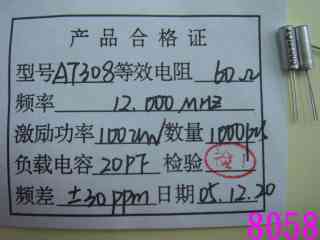 产品合格证
型号AT308等效电阻 60Ω
频率 12.000MHZ
激励功率100uW数量1000pcs
负载电容20PF 检验
频差 ±30ppm日期05.12.20
8058